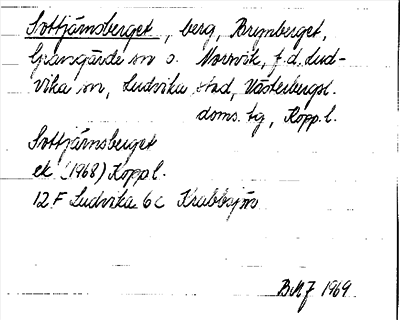 Sottjärnsberget, berg, Brynberget,
Grangärde sn o. Norrvik, f.d. Lud-
vika sn, Ludvika stad, Västerbergsl.
doms. tg, Kopp. l.
Sottjärnsberget
ek (1968) Kopp l.
12 F Ludvika 6c Krabbsjön
BMJ 1969